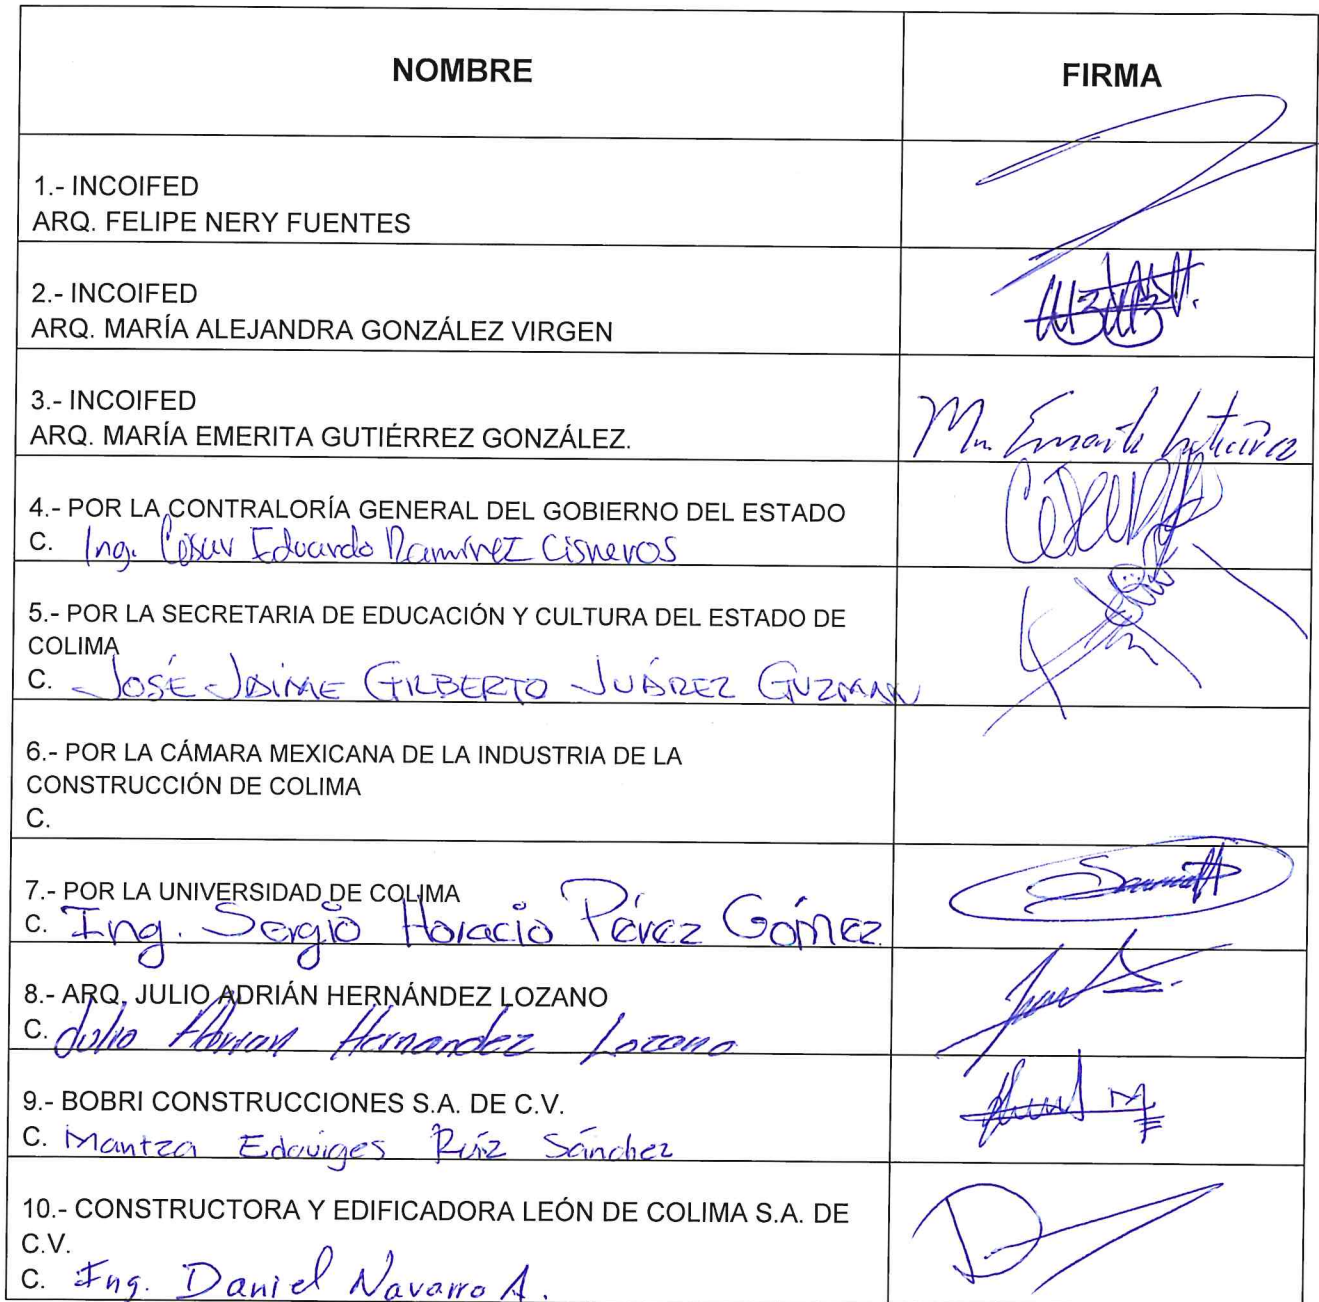 NOMBRE
FIRMA
1.- INCOIFED
ARQ. FELIPE NERY FUENTES
2.- INCOIFED
ARQ. MARÍA ALEJANDRA GONZÁLEZ VIRGEN
3.- INCOIFED
ARQ. MARÍA EMERITA GUTIÉRREZ GONZÁLEZ.
4.- POR LA CONTRALORÍA GENERAL DEL GOBIERNO DEL ESTADO
C. Ing. César Eduardo Ramírez Cisneros
5.- POR LA SECRETARIA DE EDUCACIÓN Y CULTURA DEL ESTADO DE
COLIMA
C. JOSÉ JAIME GILBERTO JUÁREZ GUZMAN
6.- POR LA CÁMARA MEXICANA DE LA INDUSTRIA DE LA
CONSTRUCCIÓN DE COLIMA
C.
7.- POR LA UNIVERSIDAD DE COLIMA
C. Ing. Sergio Horacio Pérez Gómez
8.- ARQ. JULIO ADRIÁN HERNÁNDEZ LOZANO
C. Julio Adrian Hernandez Lozano
9.- BOBRI CONSTRUCCIONES S.A. DE C.V.
C. Maritza Eduviges Ruíz Sánchez
10.- CONSTRUCTORA Y EDIFICADORA LEÓN DE COLIMA S.A. DE
C.V.
C. Ing. Daniel Navarro A.